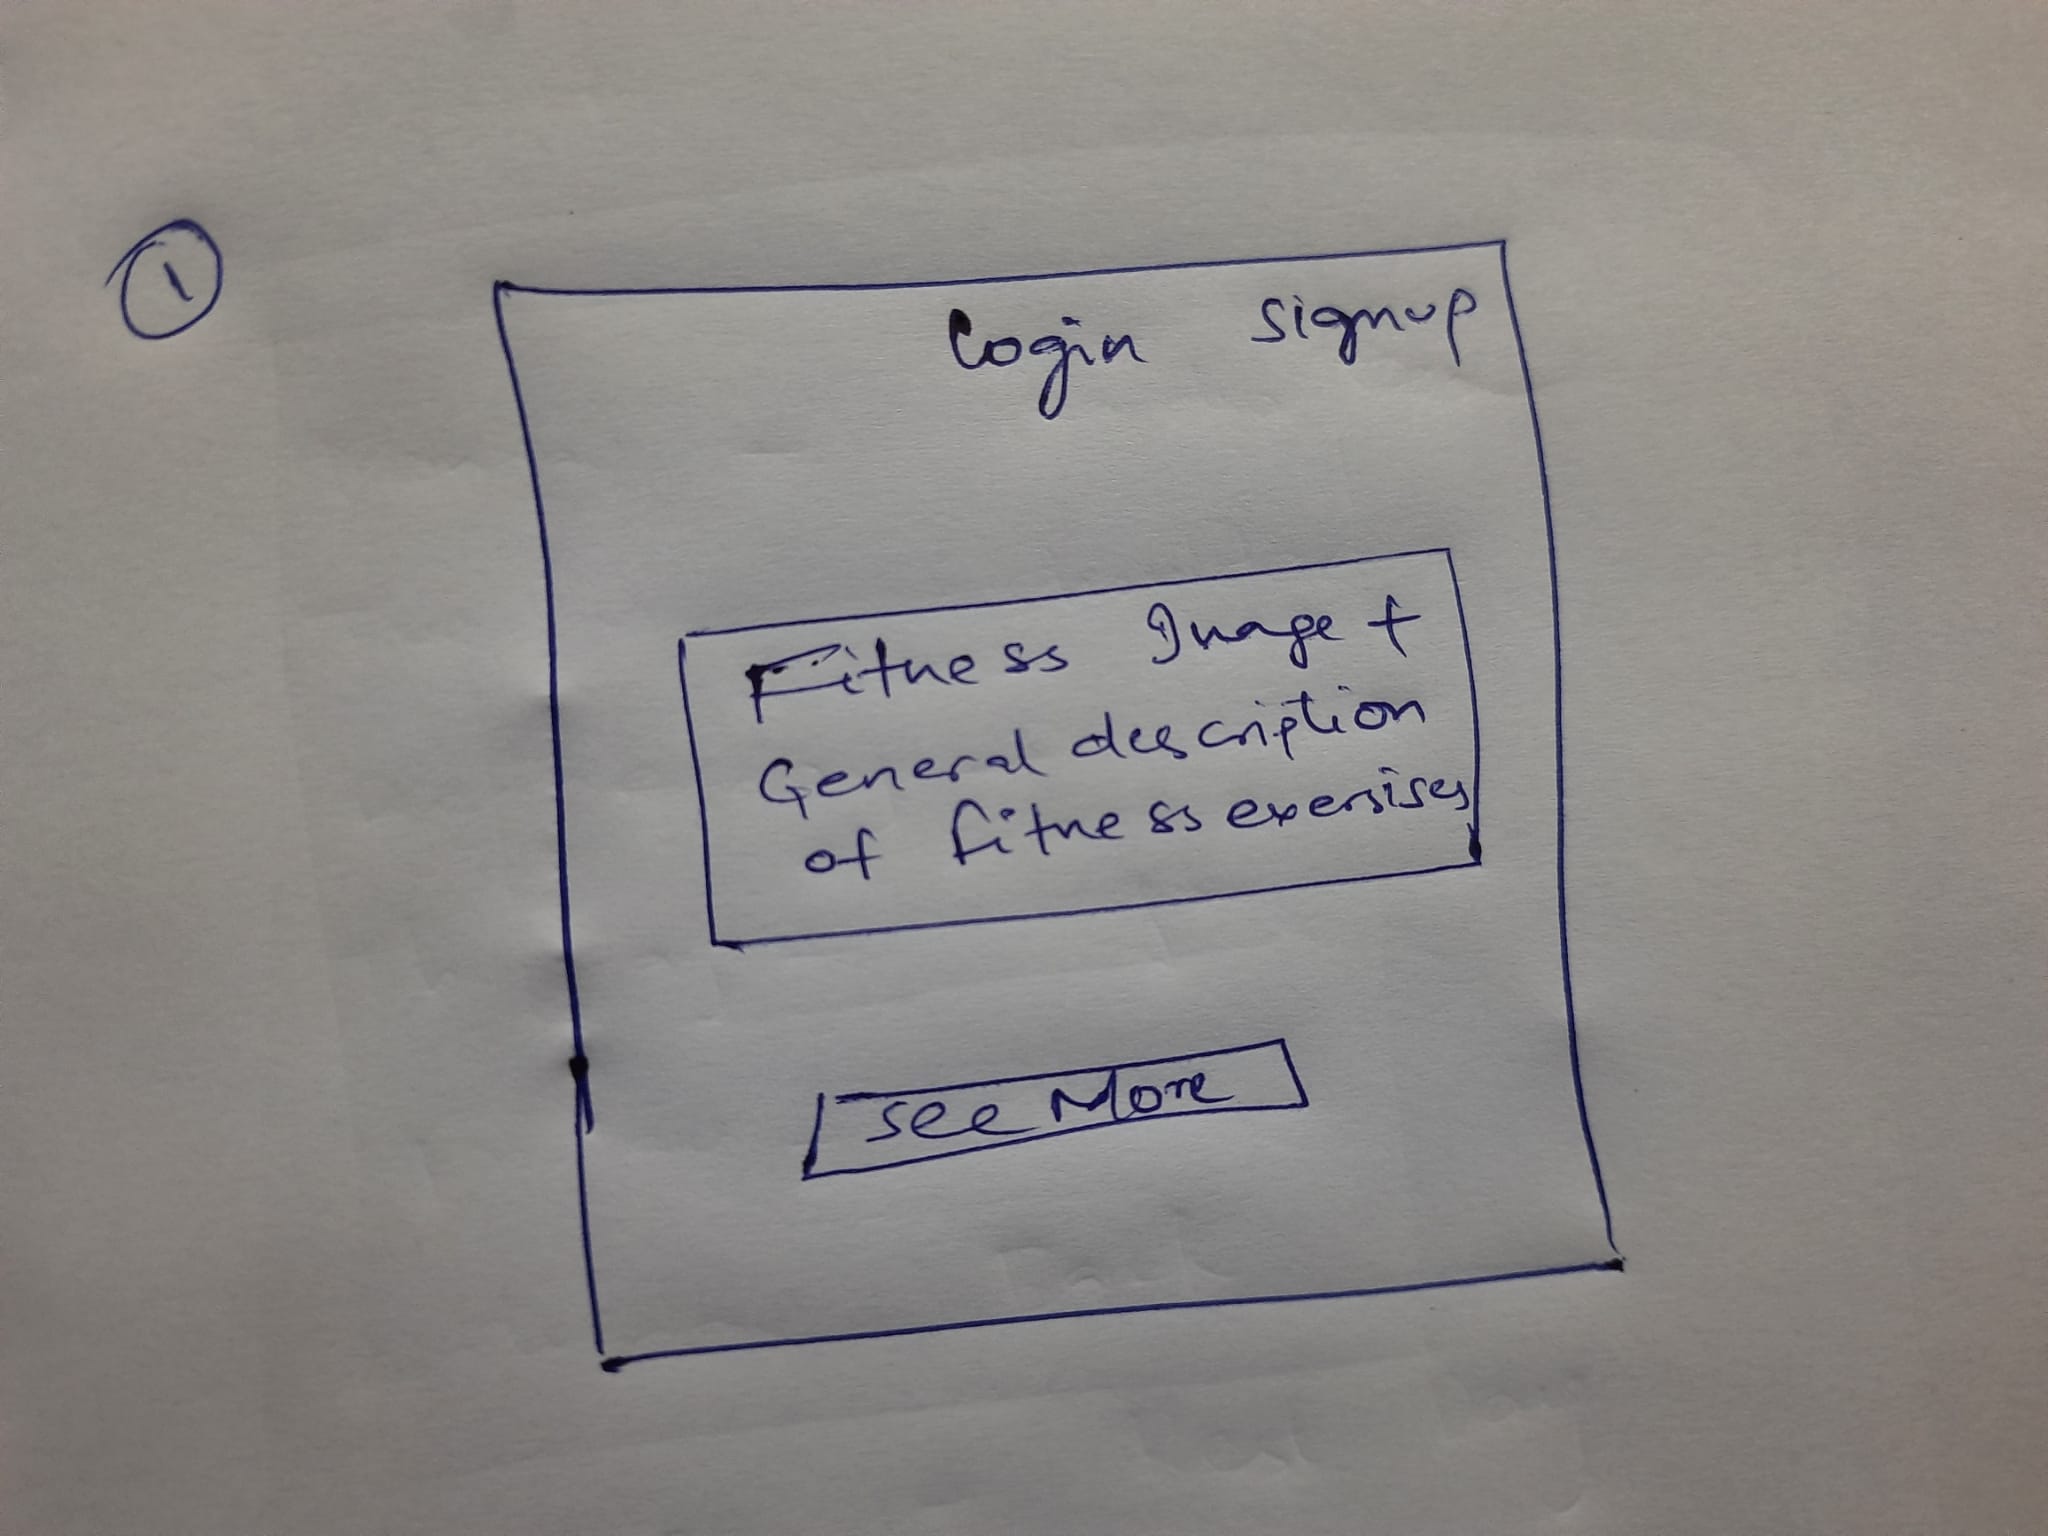 1
Login signup
Fitness Image +
General description
of fitness exersises
see More